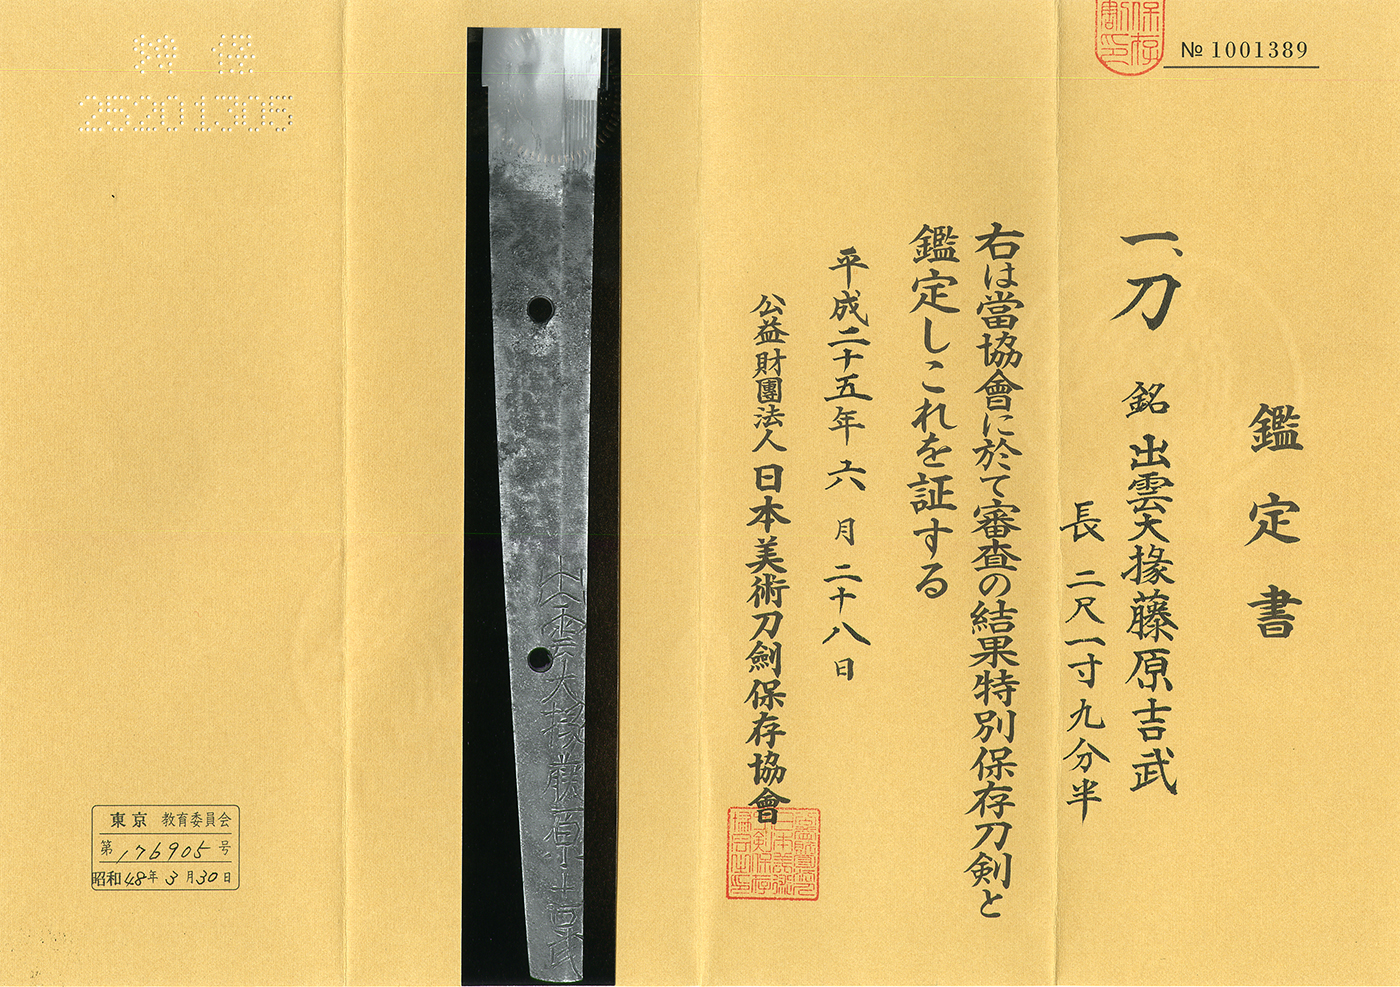 № 1001389
保存
割印
鑑定書
一、刀 銘 出雲大掾藤原吉武
長 二尺一寸九分半
右は當協會に於て審査の結果特別保存刀剣と
鑑定しこれを証する
平成二十五年 六 月 二十八日
公益財團法人 日本美術刀劍保存協會
出雲大掾藤原吉武
25201305
東京 教育委員会
第 176905 号
昭和48年 3月30日